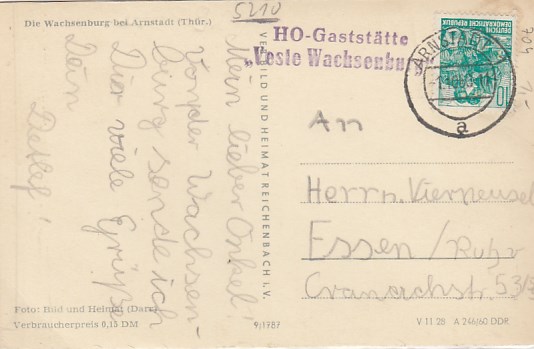 Die Wachsenburg bei Arnstadt (Thür.)
5210
Mein lieber Onkel!
Von der Wachsen-
burg sende ich
Dir viele Grüße
Dein
Detlef!
Foto: Bild und Heimat (Dare)
Verbraucherpreis 0,15 DM
VERLAG BILD UND HEIMAT REICHENBACH I. V.
9/1787
HO-Gaststätte
„Veste Wachsenburg
ARNSTADT
a
DEUTSCHE
DEMOKRATISCHE REPUBLIK
10
704
1.-
An
Herrn Vierneusel
Essen/Ruhr
Cranachstr. 53/
V 11 28 A 246/60 DDR